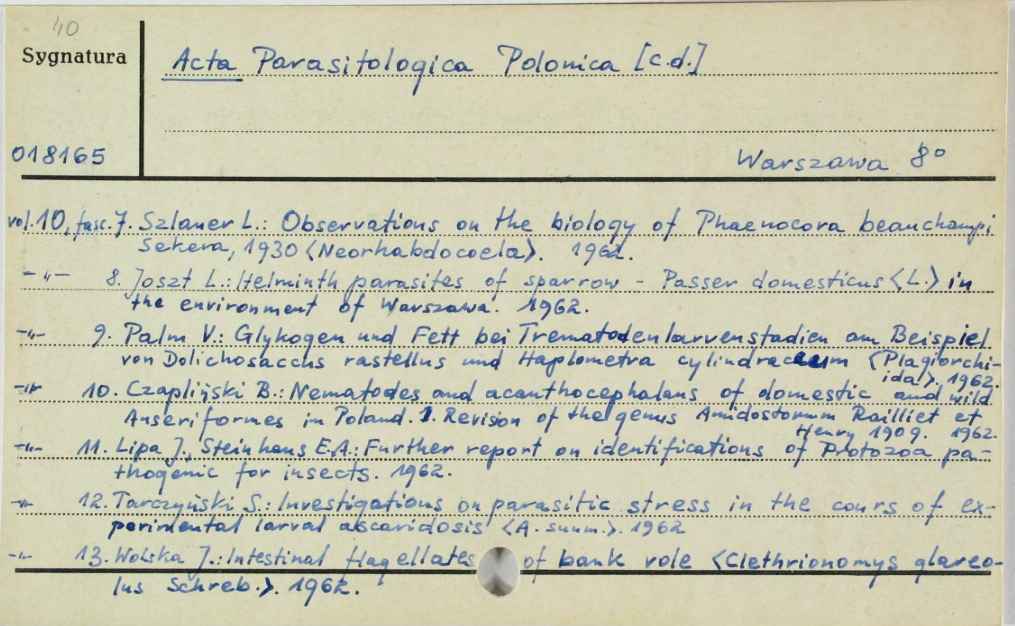 40
Sygnatura
Acta Parasitologica Polonica [c.d.]
018165
Warszawa 8°
vol. 10, fasc. 7. Szlauer L.: Observations on the biology of Phaenocora beauchampi
Sekera, 1930 <Neorhabdocoela>. 1962.
-"- 8. Joszt L.: Helminth parasites of sparrow - Passer domesticus <L.> in
the environment of Warszawa. 1962.
-"- 9. Palm V.: Glykogen und Fett bei Trematodenlarvenstadien am Beispiel
von Dolichosaccus rastellus und Haplometra cylindraceum <Plagiorchi-
ida>. 1962.
-"- 10. Czapliński B.: Nematodes and acanthocephalans of domestic and wild
Anseriformes in Poland. 1. Revision of the genus Amidostomum Railliet et
Henry 1909. 1962.
-"- 11. Lipa J., Steinhaus E.A.: Further report on identifications of Protozoa pa-
thogenic for insects. 1962.
-"- 12. Tarczyński S.: Investigations on parasitic stress in the cours of ex-
perimental larval ascaridosis <A. suum.>. 1962
-"- 13. Wolska J.: Intestinal flagellates of bank vole <Clethrionomys glareo-
lus Schreb.>. 1962.